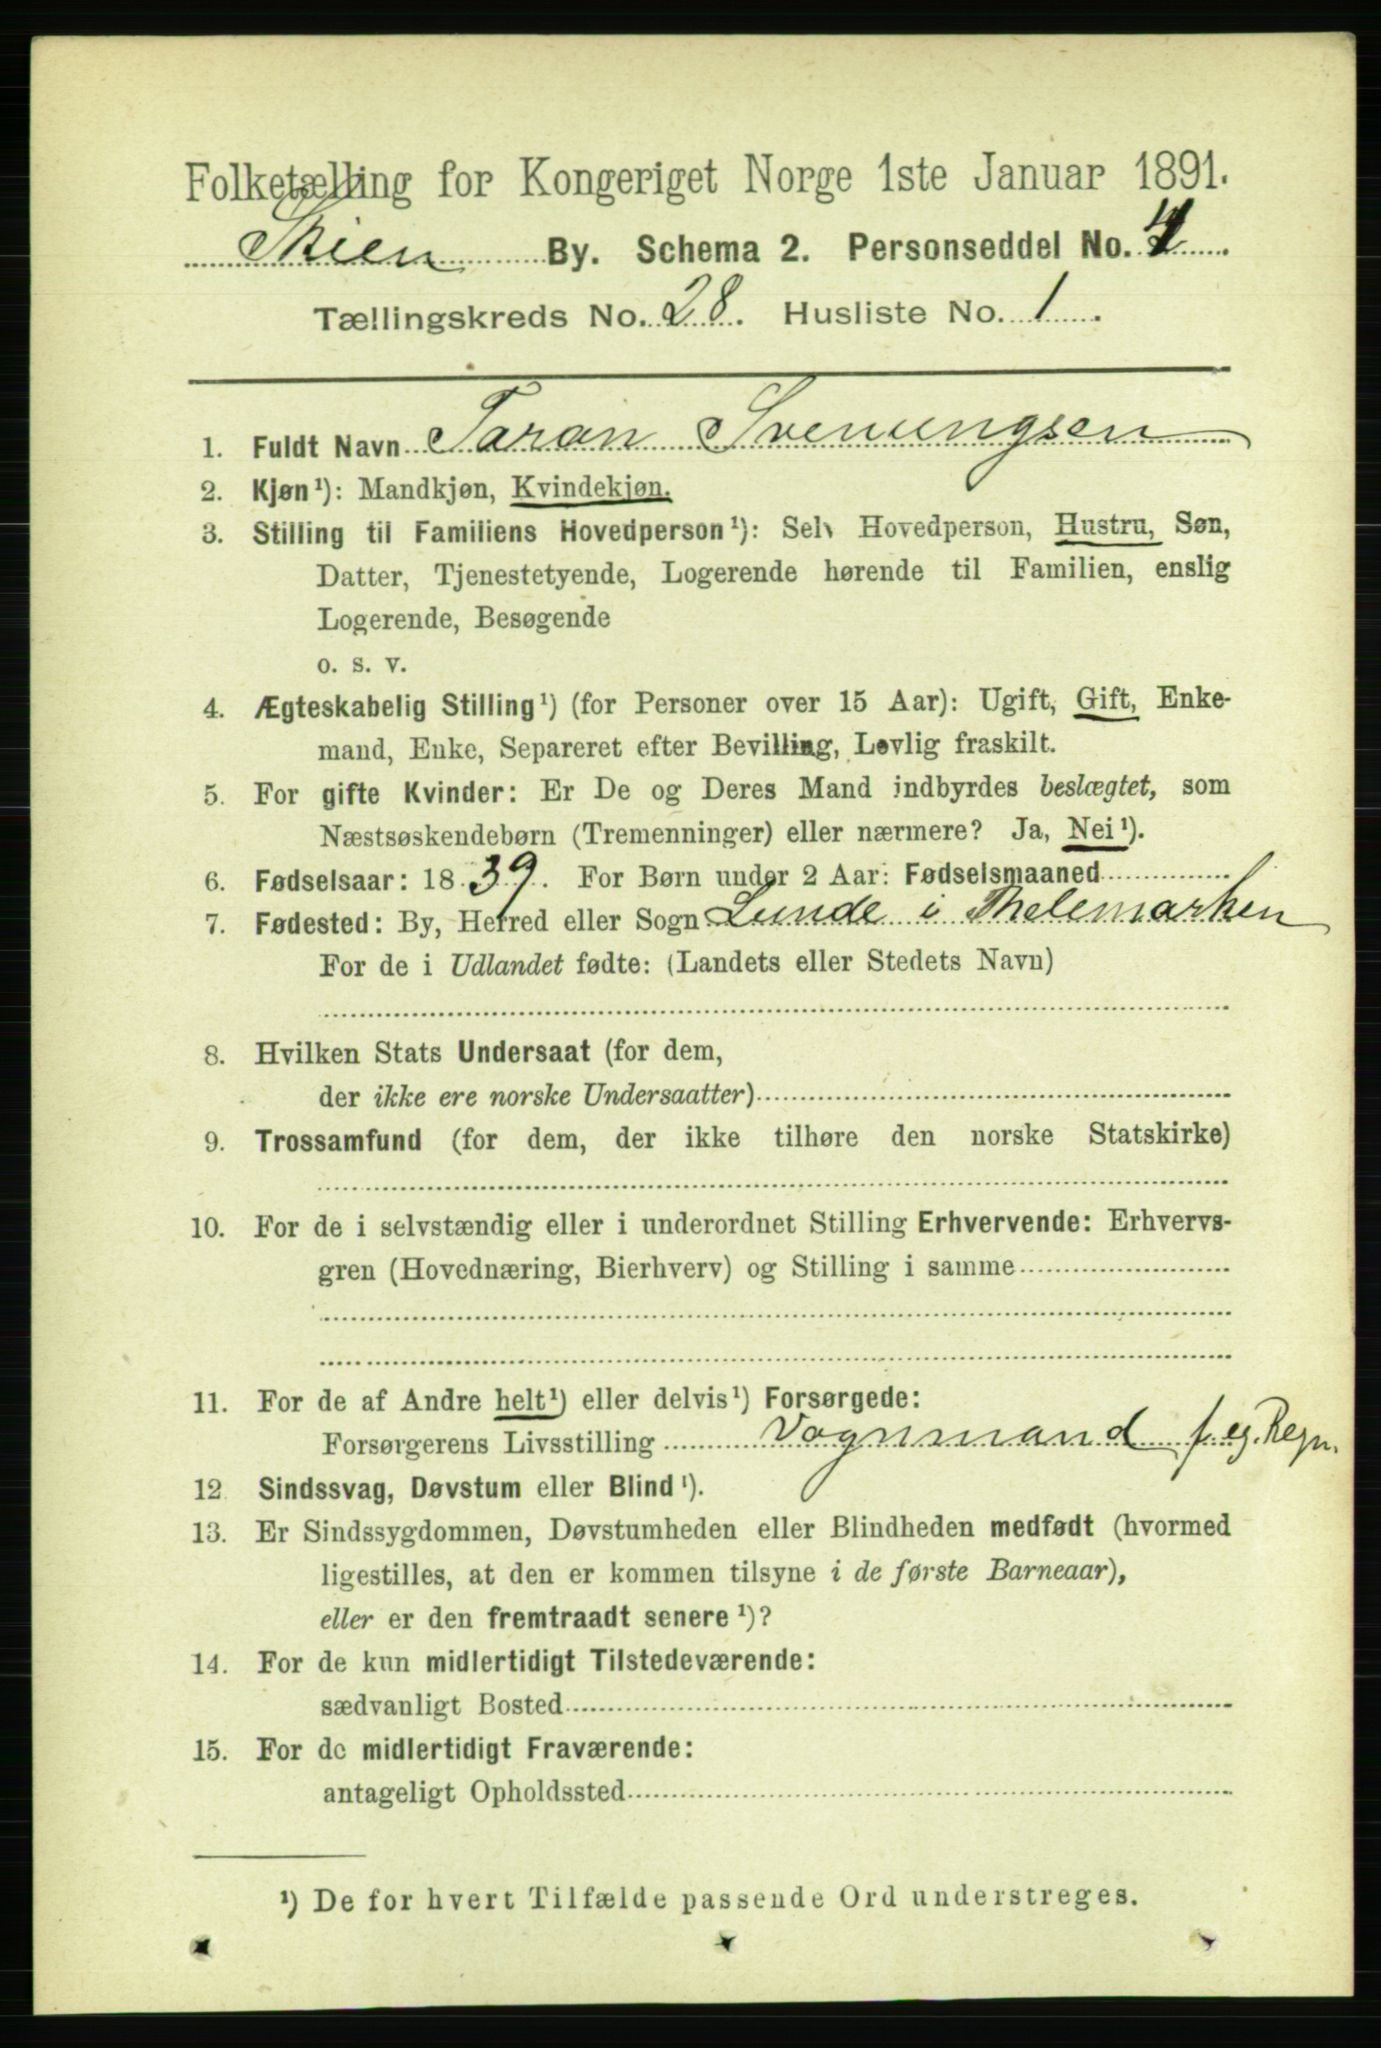 Folketælling for Kongeriget Norge 1ste Januar 1891.
Skien By. Schema 2. Personseddel No. 4
Tællingskreds No. 28. Husliste No. 1.
1. Fuldt Navn Taran Svenungsen
2. Kjøn¹): Mandkjøn, Kvindekjøn.
3. Stilling til Familiens Hovedperson¹): Selv Hovedperson, Hustru, Søn,
Datter, Tjenestetyende, Logerende hørende til Familien, enslig
Logerende, Besøgende
o. s. v.
4. Ægteskabelig Stilling¹) (for Personer over 15 Aar): Ugift, Gift, Enke-
mand, Enke, Separeret efter Bevilling, Lovlig fraskilt.
5. For gifte Kvinder: Er De og Deres Mand indbyrdes beslægtet, som
Næstsøskendebørn (Tremenninger) eller nærmere? Ja, Nei¹).
6. Fødselsaar: 1839. For Børn under 2 Aar: Fødselsmaaned
7. Fødested: By, Herred eller Sogn Lunde i Thelemarken
For de i Udlandet fødte: (Landets eller Stedets Navn)
8. Hvilken Stats Undersaat (for dem,
der ikke ere norske Undersaatter)
9. Trossamfund (for dem, der ikke tilhøre den norske Statskirke)
10. For de i selvstændig eller i underordnet Stilling Erhvervende: Erhvervs-
gren (Hovednæring, Bierhverv) og Stilling i samme
11. For de af Andre helt¹) eller delvis¹) Forsørgede:
Forsørgerens Livsstilling Vognmand f. eg. Regn.
12 Sindssvag, Døvstum eller Blind¹).
13. Er Sindssygdommen, Døvstumheden eller Blindheden medfødt (hvormed
ligestilles, at den er kommen tilsyne i de første Barneaar),
eller er den fremtraadt senere¹)?
14. For de kun midlertidigt Tilstedeværende:
sædvanligt Bosted
15. For de midlertidigt Fraværende:
antageligt Opholdssted
¹) De for hvert Tilfælde passende Ord understreges.